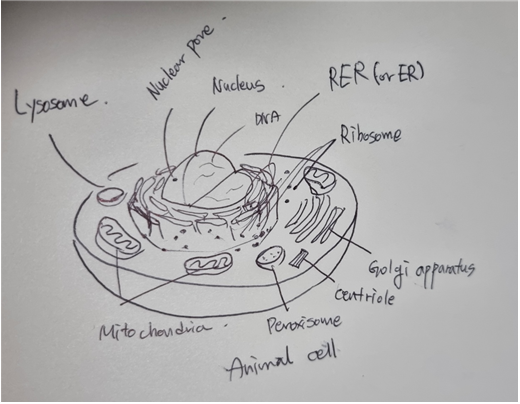 Nuclear pore.
Nucleus.
RER (or ER)
Lysosome.
DNA
Ribosome
Golgi apparatus
Centriole
Mitochondria.
Peroxisome
Animal cell